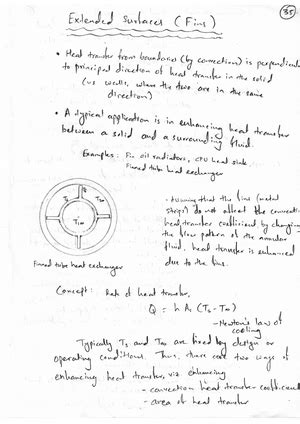 35
Extended Surfaces (Fins)
• Heat transfer from boundaries (by convection) is perpendicular
to principal direction of heat transfer in the solid
(vs walls, where the two are in the same
direction)
• A typical application is in enhancing heat transfer
between a solid and a surrounding fluid.
Examples: oil radiators, CPU heat sink
Finned tube heat exchanger
Ts
T∞
T∞
- Assuming that the fins (metal
strips) do not affect the convection
heat transfer coefficient by changing
the flow pattern of the annular
fluid, heat transfer is enhanced
due to the fins.
Finned tube heat exchanger
Concept: Rate of heat transfer,
Q = h As (Ts - T∞)
- Newton's law of
cooling
Typically Ts and T∞ are fixed by design or
operating conditions. Thus, there are two ways of
enhancing heat transfer, viz enhancing
- convection heat transfer coefficient
- area of heat transfer